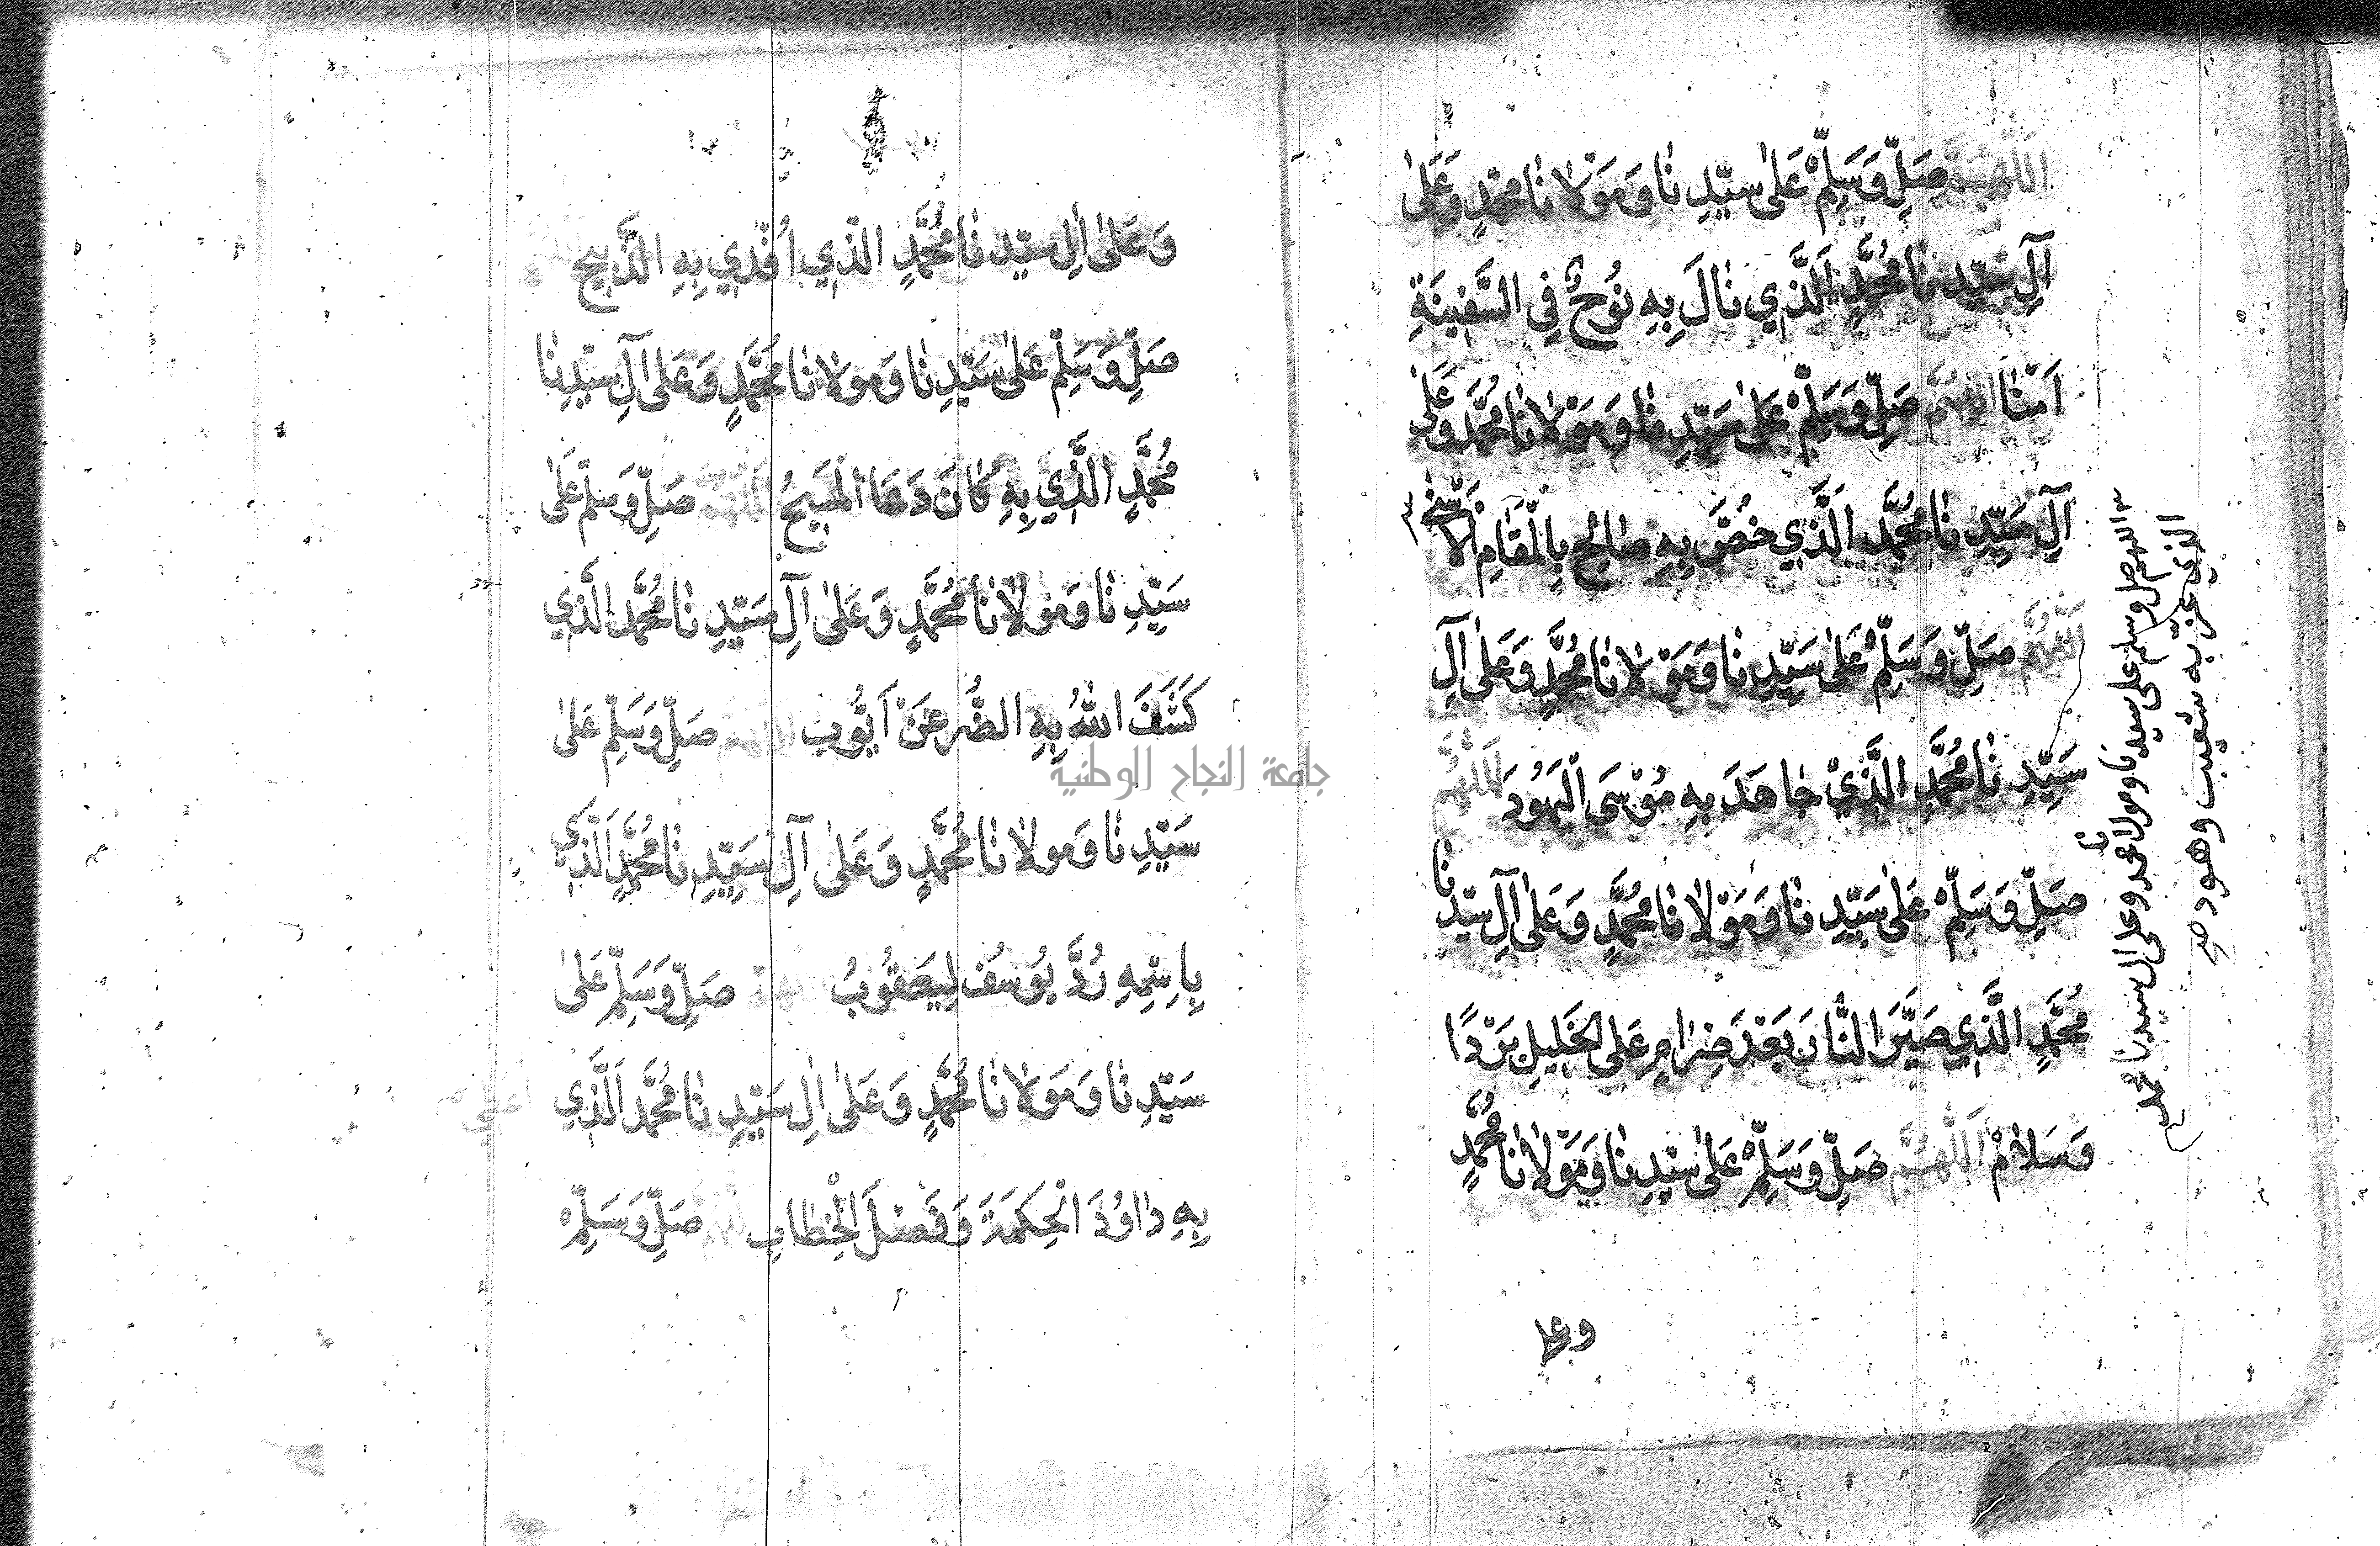 اللّٰهُمَّ صَلِّ وَسَلِّمْ عَلىٰ سيّدِنٰا وَمَوْلٰانٰا محمّدٍ وَعَلىٰ
آلِ سَيّدِنٰا مُحَمَّدٍ اَلَّذِي نٰالَ بِهِ نُوحٌ فِي السَّفِينَةِ
اَمْنٰا اللّٰهُمَّ صَلِّ وَسَلِّمْ عَلىٰ سَيّدِنٰا وَمَوْلٰانٰا مُحَمَّد وَعَلىٰ
آلِ سَيّدِنٰا مُحَمَّد الَّذِي خُصَّ بِهِ صٰالِح بِالْمَقَامِ الاَسْنىٰ
اَللّٰهُمَّ صَلِّ وَسَلِّمْ عَلىٰ سَيّدِنٰا وَمَوْلٰانٰا مُحَمَّدٍ وَعَلىٰ آلِ
سَيّدِنٰا مُحَمَّدٍ الَّذِيْ جٰاهَدَ بِهِ مُوْسَى الْيَهُودَ اَللّٰهُمَّ
صَلِّ وَسَلِّمْ عَلىٰ سَيّدِنٰا وَمَوْلٰانٰا مُحَمَّدٍ وَعَلىٰ آلِ سيّدنٰا
مُحَمَّدٍ الَّذِي صَيَّرَ النَّارَ بَعْدَ ضِرٰامٍ عَلى الخَلِيلِ بَرْدًا
وَسَلامْ اَللّٰهُمَّ صَلِّ وَسَلِّمْ عَلىٰ سيّدِنٰا وَمَوْلٰانٰا مُحَمَّدٍ
وعلى
اللهم صل وسلم على سيدنا ومولانا محمد وعلى ال سيدنا محمد
الذي به شعيب وهود صح
وَعَلىٰ اٰلِ سيّدنٰا مُحَمَّدٍ الَّذِي اُفْدِي بِهِ الذَّبِيح
صَلِّ وَسَلِّم عَلىٰ سَيّدِنٰا وَمولانٰا مُحَمَّدٍ وَعَلى آلِ سيّدِنٰا
مُحَمَّدٍ الَّذِي بِهِ كٰانَ دَعَا المَسِيحُ اَللّٰهُمَّ صَلِّ وَسلّم عَلىٰ
سَيّدِنٰا وَمَولانٰا مُحَمَّدٍ وَعَلىٰ آلِ سَيّدِنٰا مُحَمَّد الَّذِي
كَشَفَ اللهُ بِهِ الضُّر عَنْ اَيُّوب اللهم صَلِّ وَسَلِّم عَلىٰ
سَيّدِنٰا وَمولانٰا مُحَمَّدٍ وَعَلىٰ آلِ سَيّدِنٰا مُحَمَّدٍ اَلَّذِي
بِاسْمِهِ رُدَّ يُوسُف لِيَعقُوبُ اللهم صَلِّ وَسَلِّم عَلىٰ
سَيّدِنٰا وَمَولانٰا مُحَمَّدٍ وَعَلىٰ اٰلِ سَيّدِنٰا مُحَمَّد اَلَّذِي
بِهِ دٰاوُدَ الْحِكمَةَ وَفَصْلَ الْخِطابِ اللهم صَلِّ وَسَلِّمْ
جامعة النجاح الوطنية